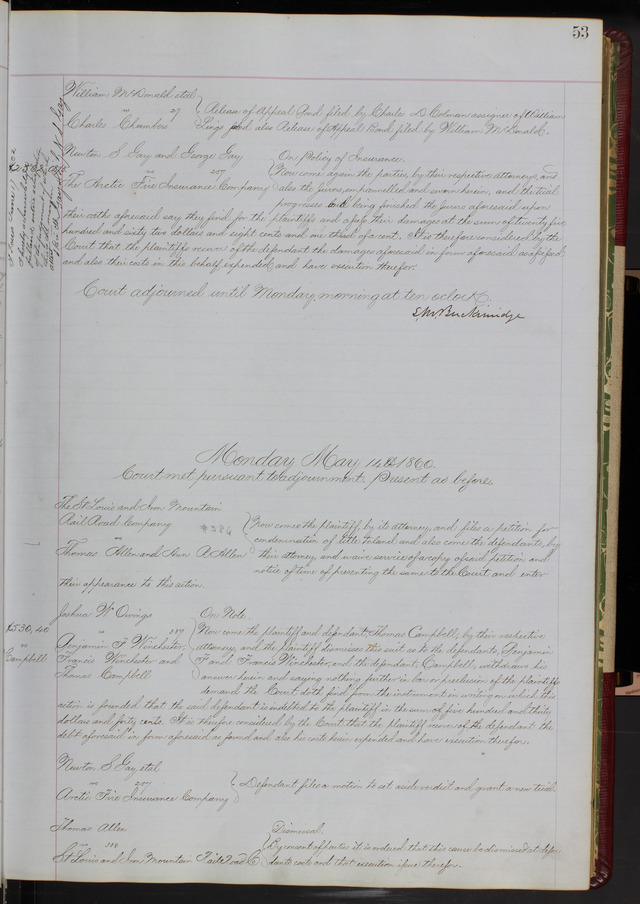 53
William McDonald et al
vs 27
Charles Chambers
Release of Appeal Bond filed by Charles D Colman assignee of William
Lings and also Release of Appeal Bond filed by William McDonald.
Newton S Gay and George Gay On Policy of Insurance.
vs 257
The Arctic Fire Insurance Company
Now come again the parties, by their respective attorneys, and
also the Jurors, empannelled and sworn herein, and the trial
progresses and being finished the Jurors aforesaid upon
their oaths aforesaid say they find for the plaintiffs and assess their damages at the sum of twenty five
hundred and sixty two dollars and eight cents and one third of a cent. It is therefore considered by the
Court that the plaintiffs recover of the defendant the damages aforesaid in form aforesaid assessed
and also their costs in this behalf expended, and have execution therefor.
Court adjourned until Monday morning at ten oclock.
S. M. Breckinridge
Monday May 14th 1860.
Court met pursuant to adjournment. Present as before.
The St Louis and Iron Mountain
Rail Road Company #286
vs
Thomas Allen and Ann R Allen
Now comes the plaintiff, by its attorney, and files a petition for
condemnation of title to land and also come the defendants, by
their attorney, and waive service of a copy of said petition and
notice of time of presenting the same to the Court and enter
their appearance to this action.
Joshua W Owings On Note.
$530,40
vs
Campbell
Benjamin F Winchester,
Francis Winchester and
Thomas Campbell
Now come the plaintiff and defendant, Thomas Campbell, by their respective
attorneys, and the plaintiff dismisses this suit as to the defendants, Benjamin
F and Francis Winchester, and the defendant, Campbell, withdraws his
answer herein and saying nothing further in bar or preclusion of the plaintiffs
demand the Court doth find from the instrument in writing on which this
action is founded that the said defendant is indebted to the plaintiff in the sum of five hundred and thirty
dollars and forty cents. It is therefore considered by the Court that the plaintiff recover of the defendant the
debt aforesaid in form aforesaid as found and also his costs herein expended and have execution therefor.
Newton S Gay, et al
vs 257
Arctic Fire Insurance Company
Defendant files a motion to set aside verdict and grant a new trial
Thomas Allen Dismissal.
vs
St Louis and Iron Mountain Rail Road Co
By consent of parties it is ordered that this cause be dismissed at defen
dants costs and that execution issue therefor.